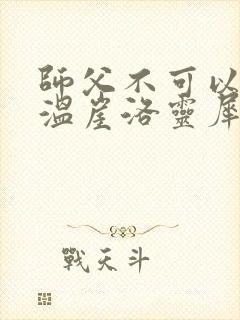 師父不可以
溫崖洛靈犀
戰天斗